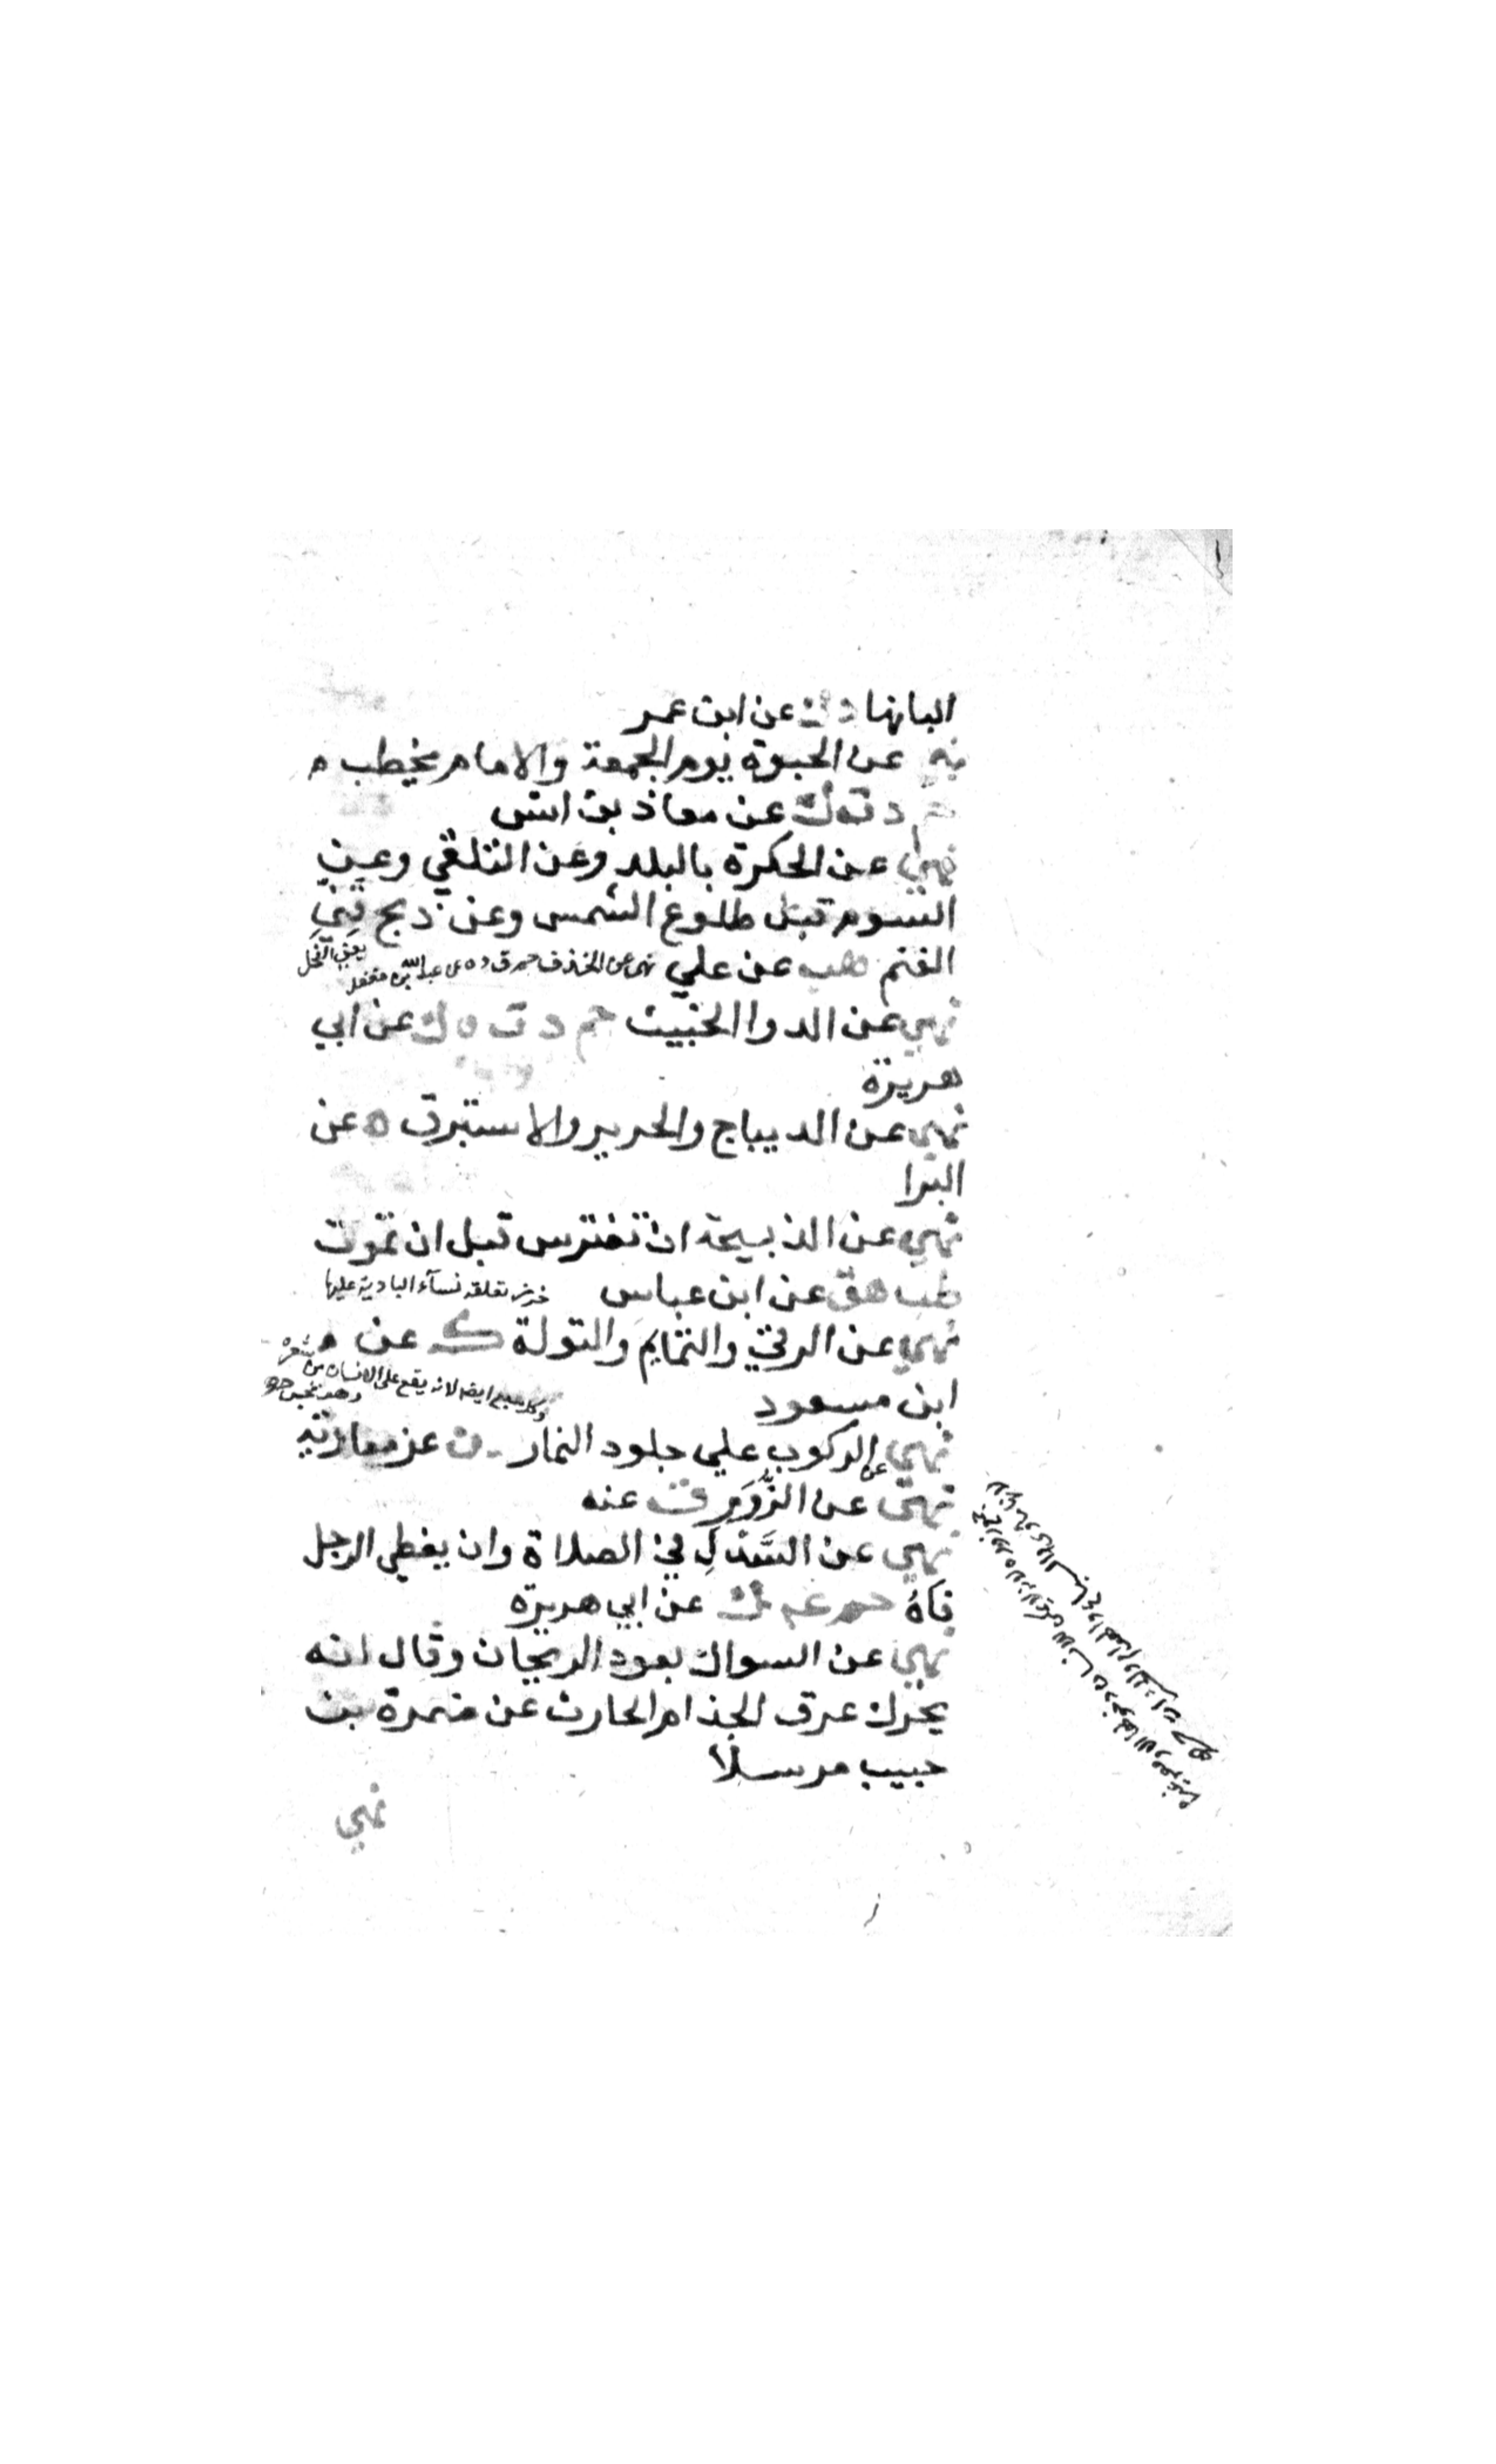 البانها د ك عن ابن عمر
نهى عن الحبوة يوم الجمعة والامام يخطب م
حم د ت ك عن معاذ بن انس
نهي عن الحكرة بالبلد وعن التلقي وعن
السوم قبل طلوع الشمس وعن ذبح قني
الغنم هب عن علي نهى عن الخذف حم ق د ه عن عبد الله بن مغفل
نهي عن الدوا الخبيث حم د ت ه ك عن ابي
هريرة
نهي عن الديباج والحرير والاستبرق ه عن
البرا
نهي عن الذبيحة ان تفترس قبل ان تموت
طب هق عن ابن عباس خرزه تعلقه نسآء البادية عليها
نهي عن الرقي والتمايم والتولة ك عن م
وكل سبع ايضا لانه يقع على الانسان من شعره
وهو نجس
ابن مسعود
نهي عن الركوب علي جلود النمار د ن عن معاوية
نهى عن الزور ن عنه
نهي عن السَّدْلِ في الصلاة وان يغطي الرجل
فاهُ حم عم ك عن ابي هريرة
نهي عن السواك بعود الريحان وقال انه
يحرك عرق الجذام الحارث عن ضمرة بن
حبيب مرسلًا
نهي